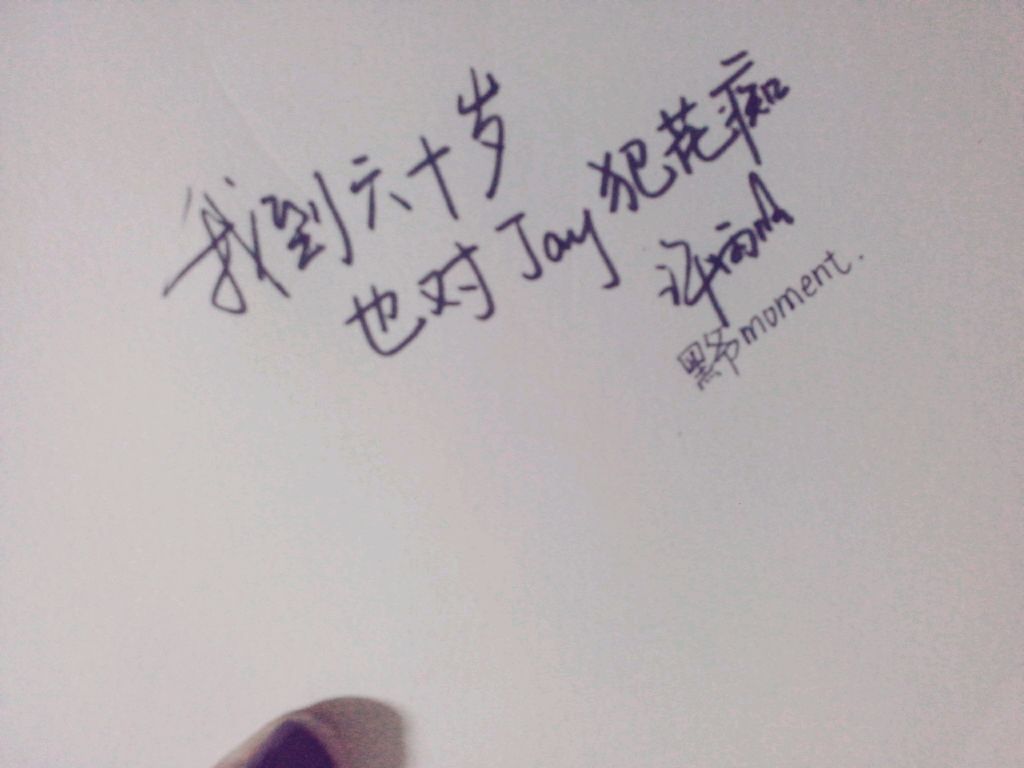 我到六十岁
也对Jay犯花痴
许
moment.